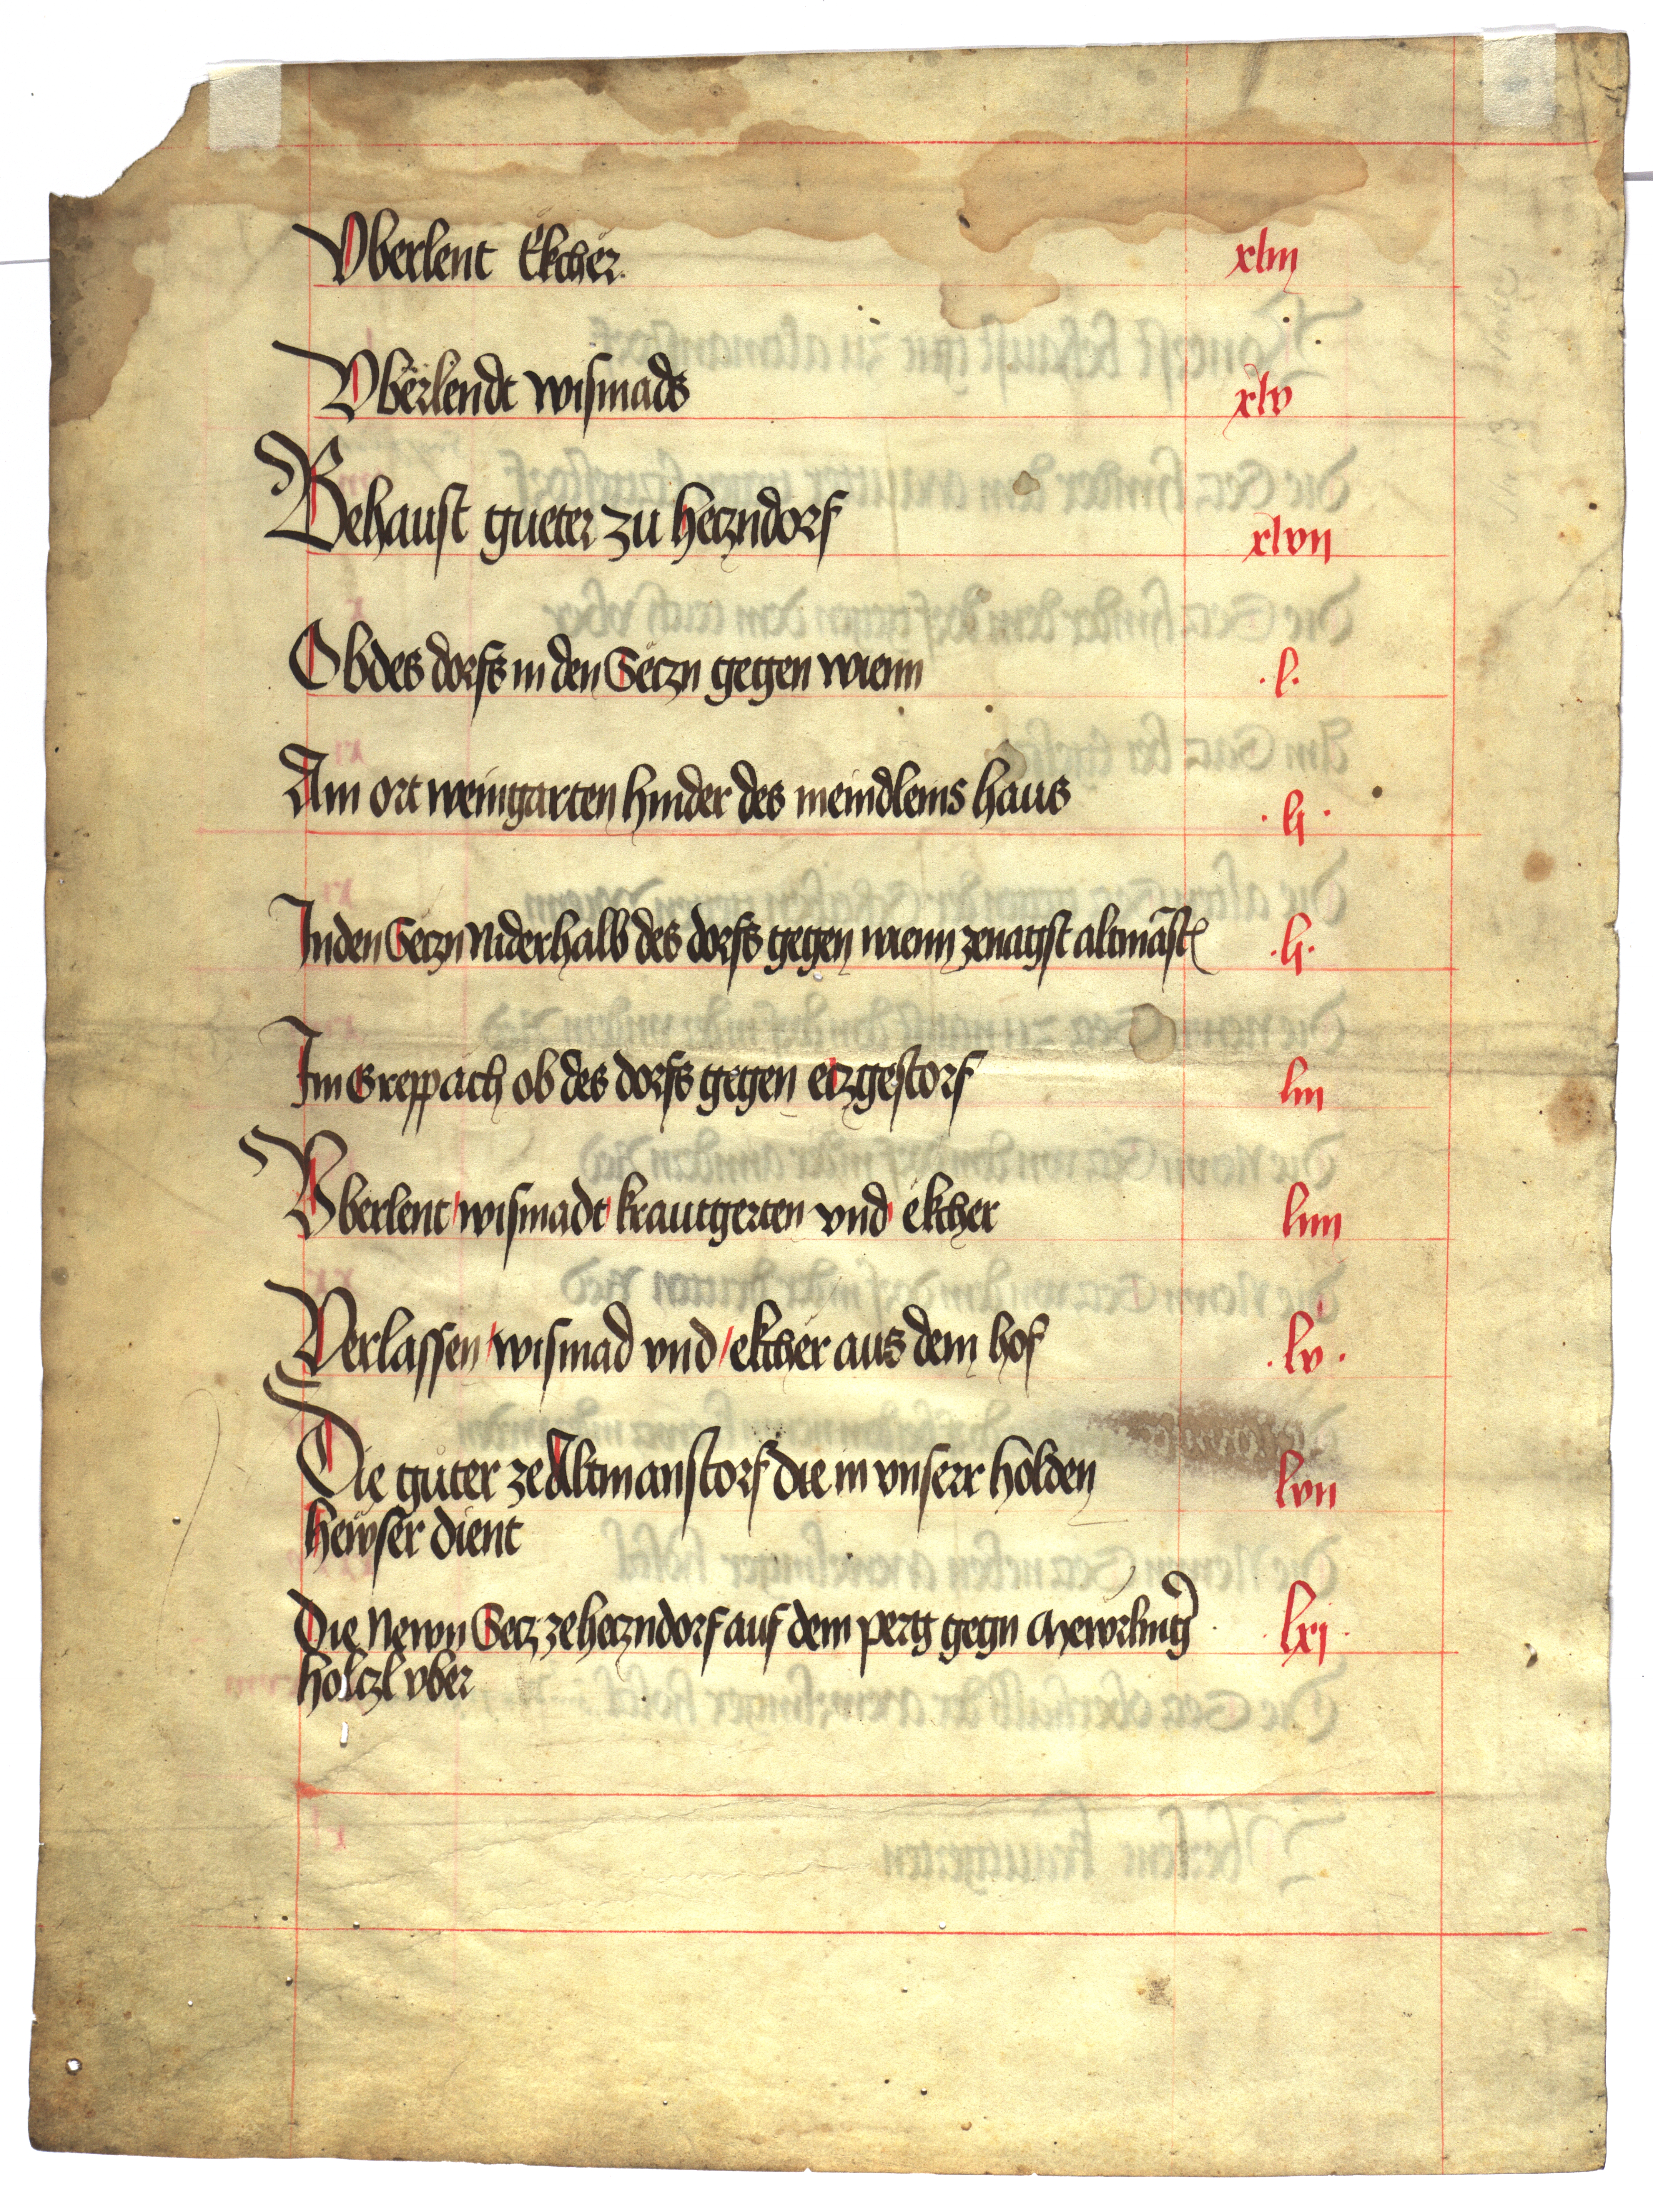 Vberlent Ekcher xliij
Vberlendt wismads xlv
Behaust gueter zu herzndorf xlvij
Ob des dorfs in den Seczn gegen wienn .l.
Am ort weingarten hinder des meindleins haus .lj.
In den Seczn Niderhalb des dorfs gegen wienn zenagst altmāst .lj.
Im Greppach ob des dorfs gegen eczgestorf liij
Vberlent wismadt krautgerten vnd ekcher liiij
Verlassen wismad vnd ekcher aus dem hof .lv.
Die güter ze Altmanstorf die in vnserr holden lvij
hewser dient
Die Newn Secz ze heczndorf auf dem perg gegn Mewrling .lxj.
holczl vber